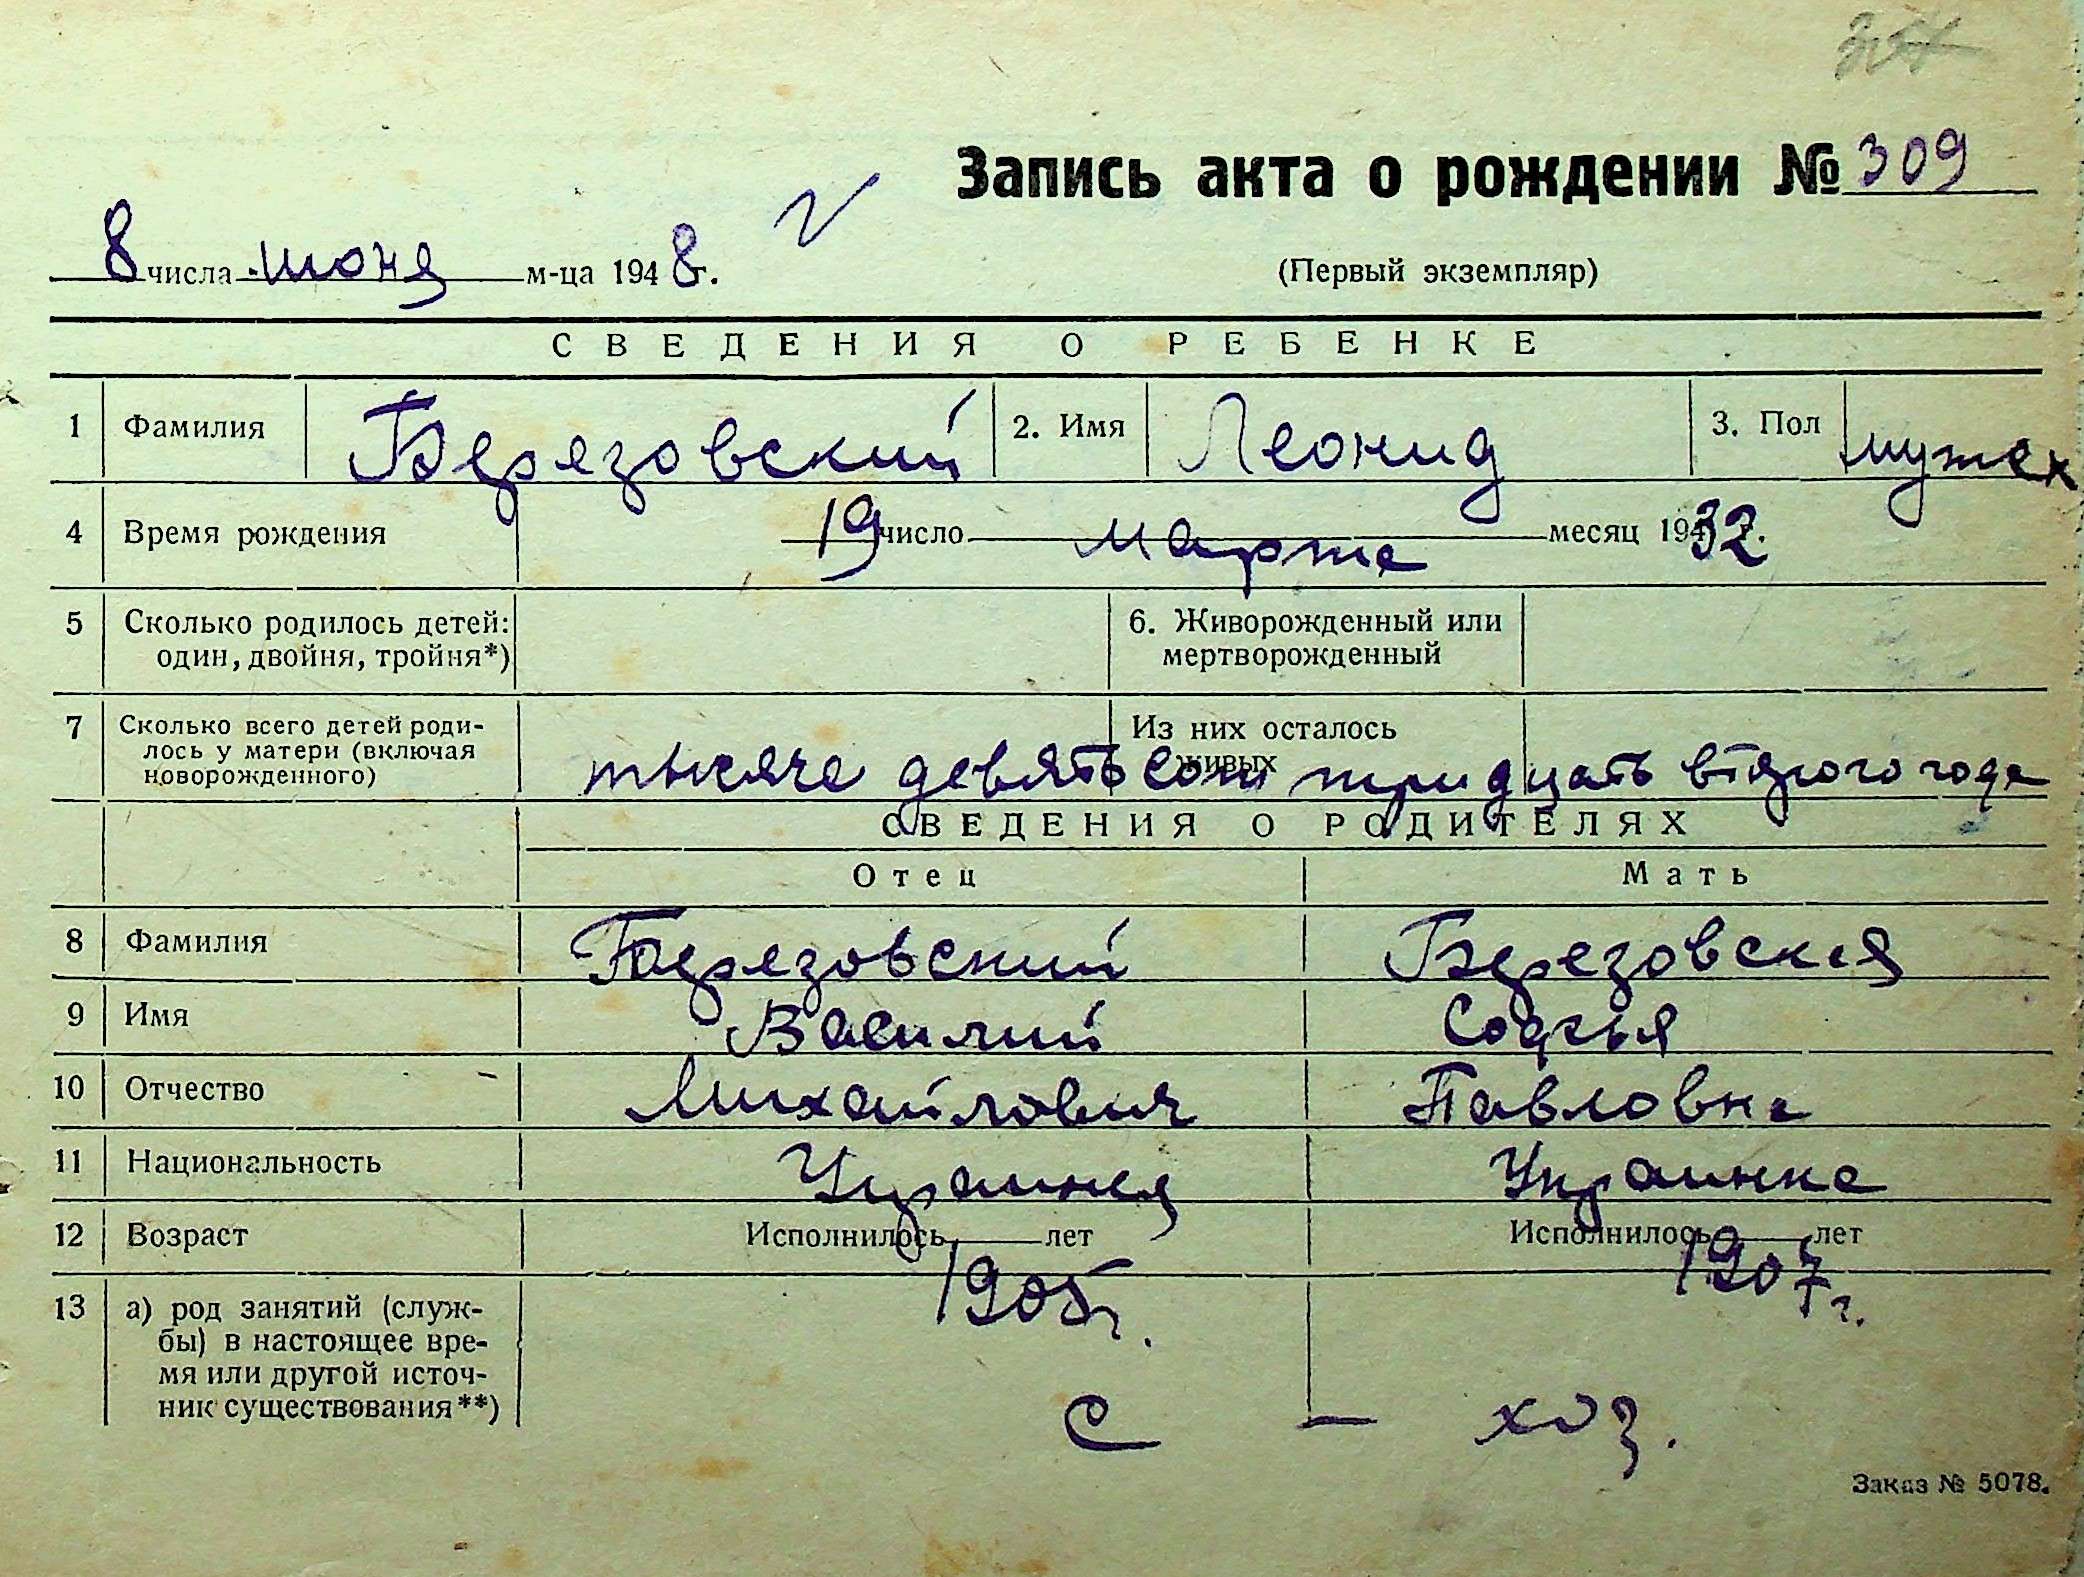 Запись акта о рождении № 309
8 числа июня м-ца 1948 г.
(Первый экземпляр)
СВЕДЕНИЯ О РЕБЕНКЕ
1 Фамилия Березовский 2. Имя Леонид 3. Пол мужск
4 Время рождения 19 число марта месяц 1932 г.
5 Сколько родилось детей: 6. Живорожденный или
один, двойня, тройня*) мертворожденный
7 Сколько всего детей роди- Из них осталось
лось у матери (включая живых
новорожденного) тысяча девятьсот тридцать второго года
СВЕДЕНИЯ О РОДИТЕЛЯХ
Отец Мать
8 Фамилия Березовский Березовская
9 Имя Василий Софья
10 Отчество Михайлович Павловна
11 Национальность Украинец Украинка
12 Возраст Исполнилось лет Исполнилось лет
1905 г. 1907 г.
13 а) род занятий (служ-
бы) в настоящее вре-
мя или другой источ-
ник существования**) с - хоз.
Заказ № 5078.